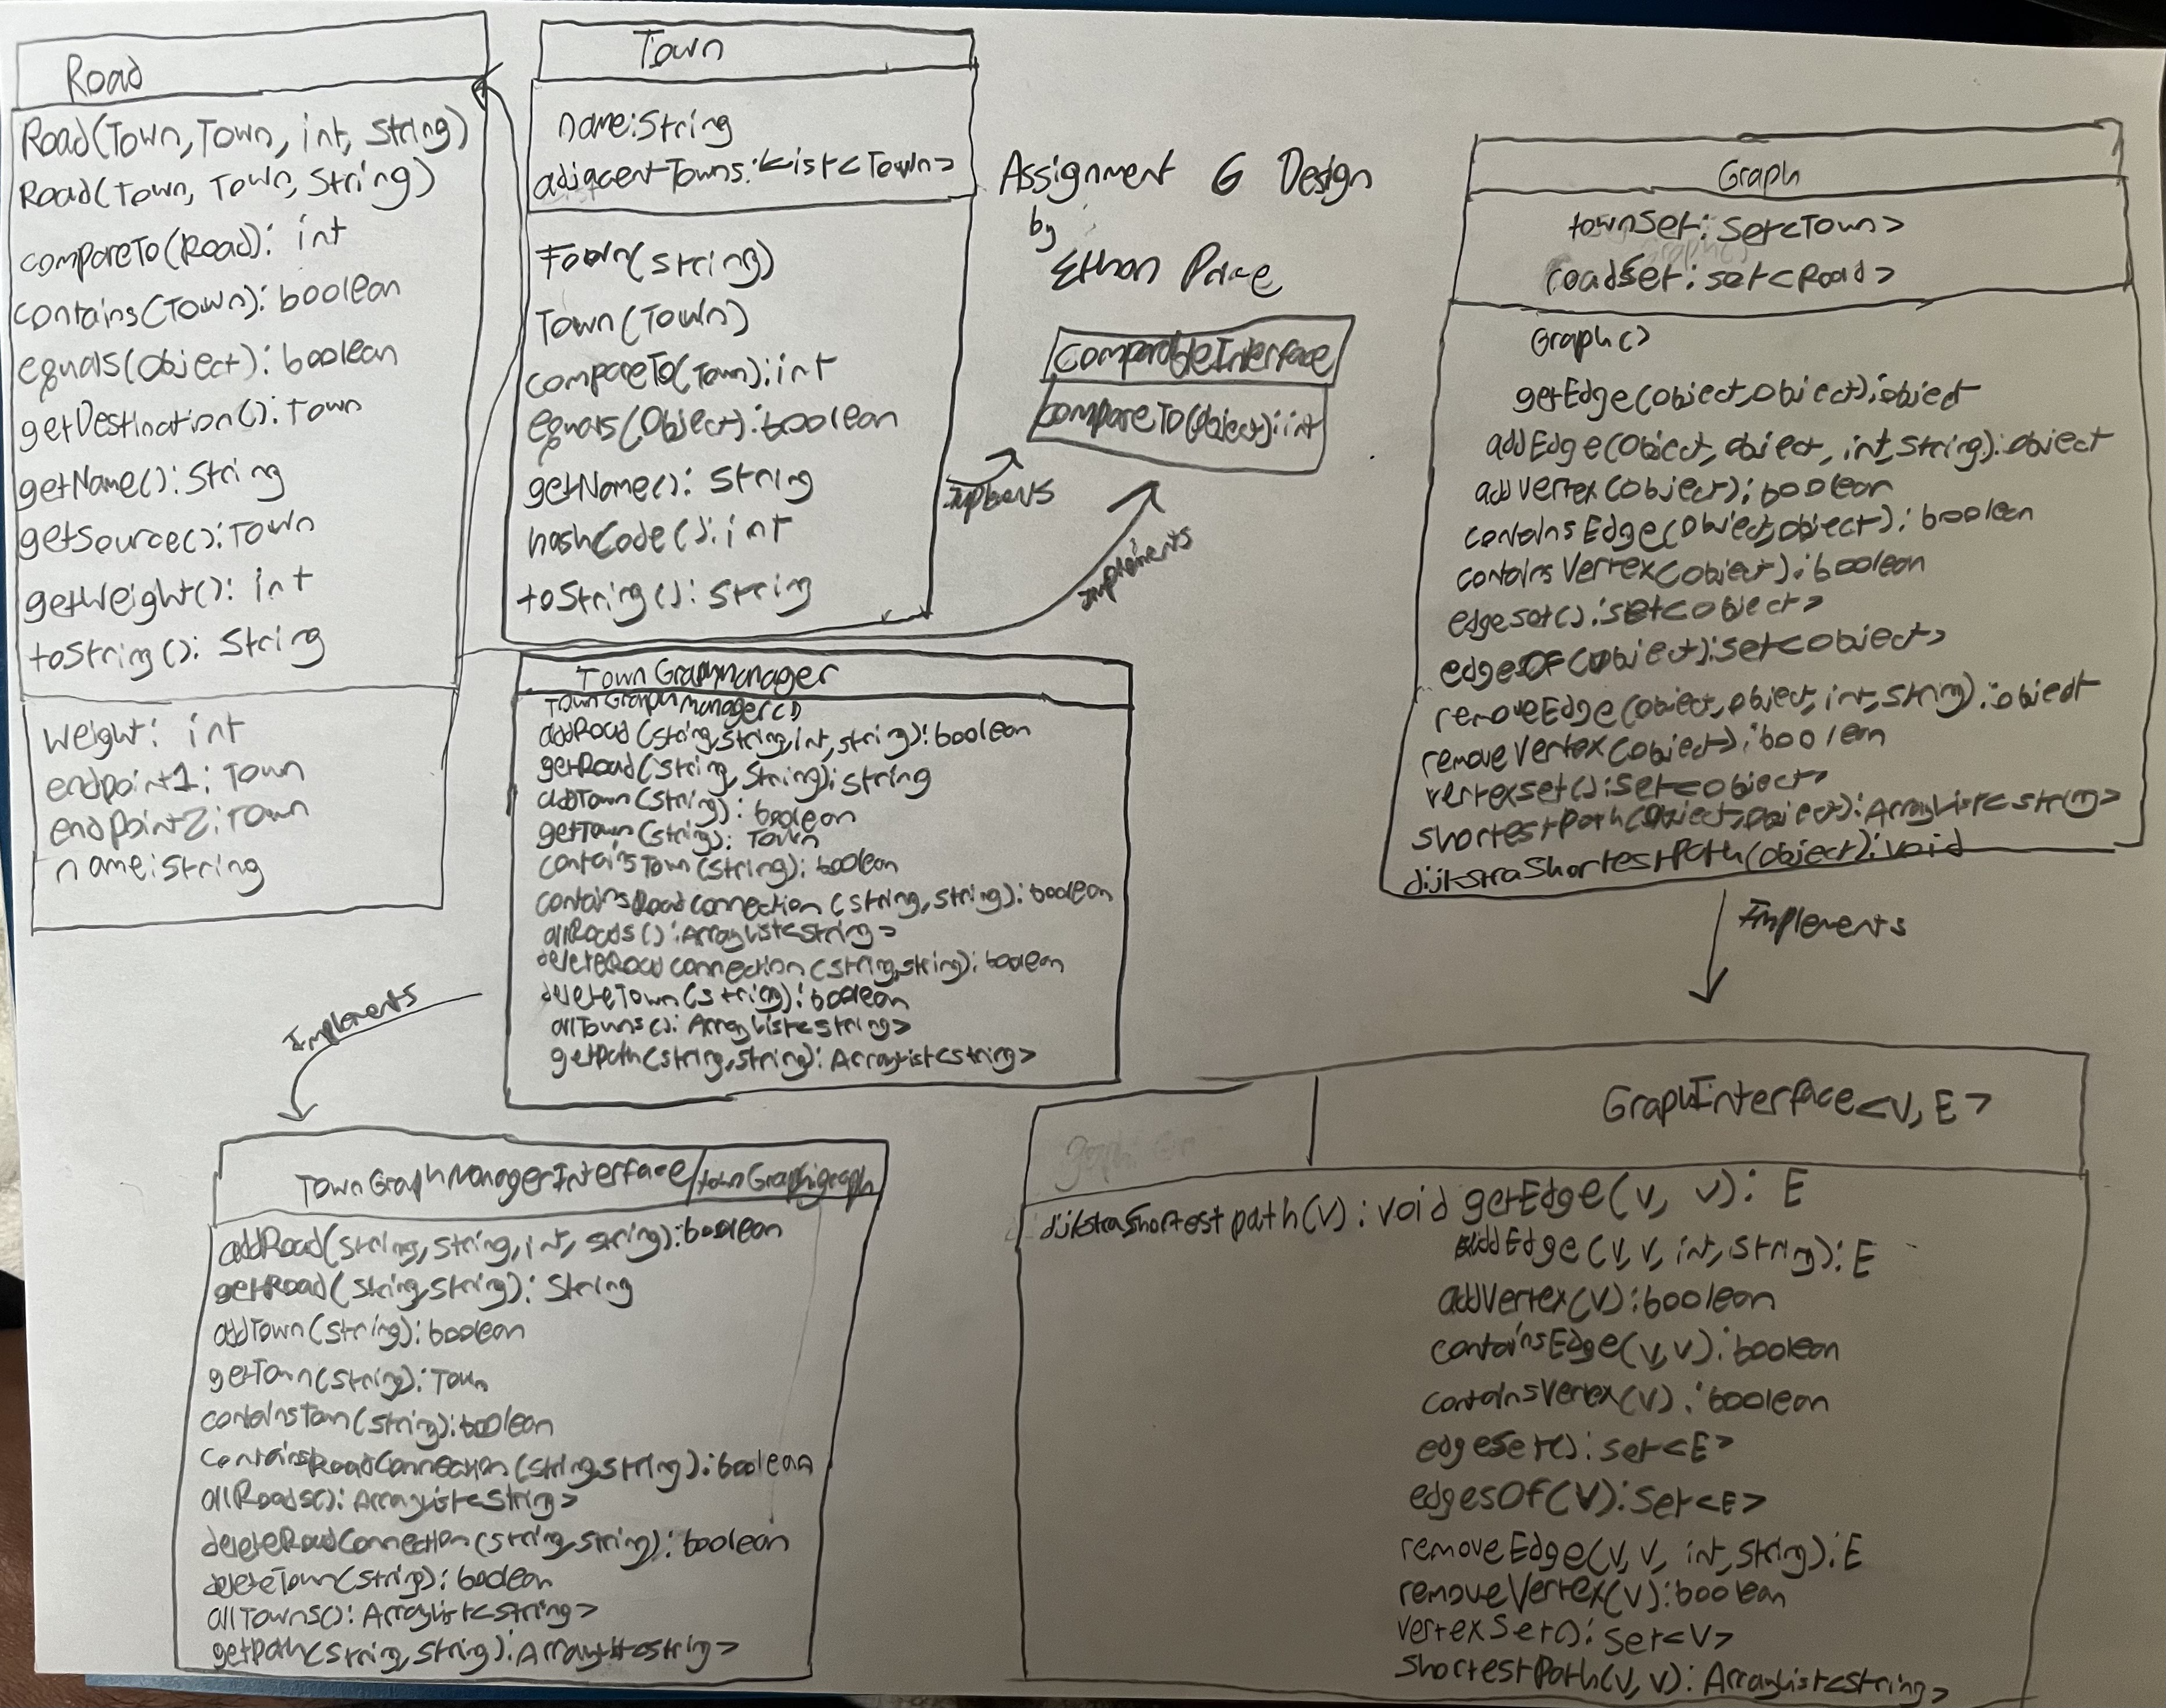 Road
Road(Town, Town, int, String)
Road(Town, Town, String)
compareTo(Road): int
contains(Town): boolean
equals(Object): boolean
getDestination(): Town
getName(): String
getSource(): Town
getWeight(): int
toString(): String
weight: int
endpoint1: Town
endpoint2: Town
name: String
Town
name: String
adjacentTowns: List<Town>
Town(String)
Town(Town)
compareTo(Town): int
equals(Object): boolean
getName(): String
hashCode(): int
toString(): String
Assignment 6 Design
by
Ethan Price
ComparableInterface
compareTo(Object): int
Implements
Graph
townSet: Set<Town>
roadSet: Set<Road>
Graph()
getEdge(Object, Object): Object
addEdge(Object, Object, int, String): Object
addVertex(Object): boolean
containsEdge(Object, Object): boolean
containsVertex(Object): boolean
edgeSet(): Set<Object>
edgesOf(Object): Set<Object>
removeEdge(Object, Object, int, String): Object
removeVertex(Object): boolean
vertexSet(): Set<Object>
shortestPath(Object, Object): ArrayList<String>
dijkstraShortestPath(Object): void
Implements
TownGraphManager
TownGraphManager()
addRoad(String, String, int, String): boolean
getRoad(String, String): String
addTown(String): boolean
getTown(String): Town
containsTown(String): boolean
containsRoadConnection(String, String): boolean
allRoads(): ArrayList<String>
deleteRoadConnection(String, String): boolean
deleteTown(String): boolean
allTowns(): ArrayList<String>
getPath(String, String): ArrayList<String>
Implements
TownGraphManagerInterface/townGraph:graph
addRoad(String, String, int, String): boolean
getRoad(String, String): String
addTown(String): boolean
getTown(String): Town
containsTown(String): boolean
containsRoadConnection(String, String): boolean
allRoads(): ArrayList<String>
deleteRoadConnection(String, String): boolean
deleteTown(String): boolean
allTowns(): ArrayList<String>
getPath(String, String): ArrayList<String>
GraphInterface<V, E>
dijkstraShortestpath(V): void getEdge(V, V): E
addEdge(V, V, int, String): E
addVertex(V): boolean
containsEdge(V, V): boolean
containsVertex(V): boolean
edgeSet(): Set<E>
edgesOf(V): Set<E>
removeEdge(V, V, int, String): E
removeVertex(V): boolean
vertexSet(): Set<V>
shortestPath(V, V): ArrayList<String>